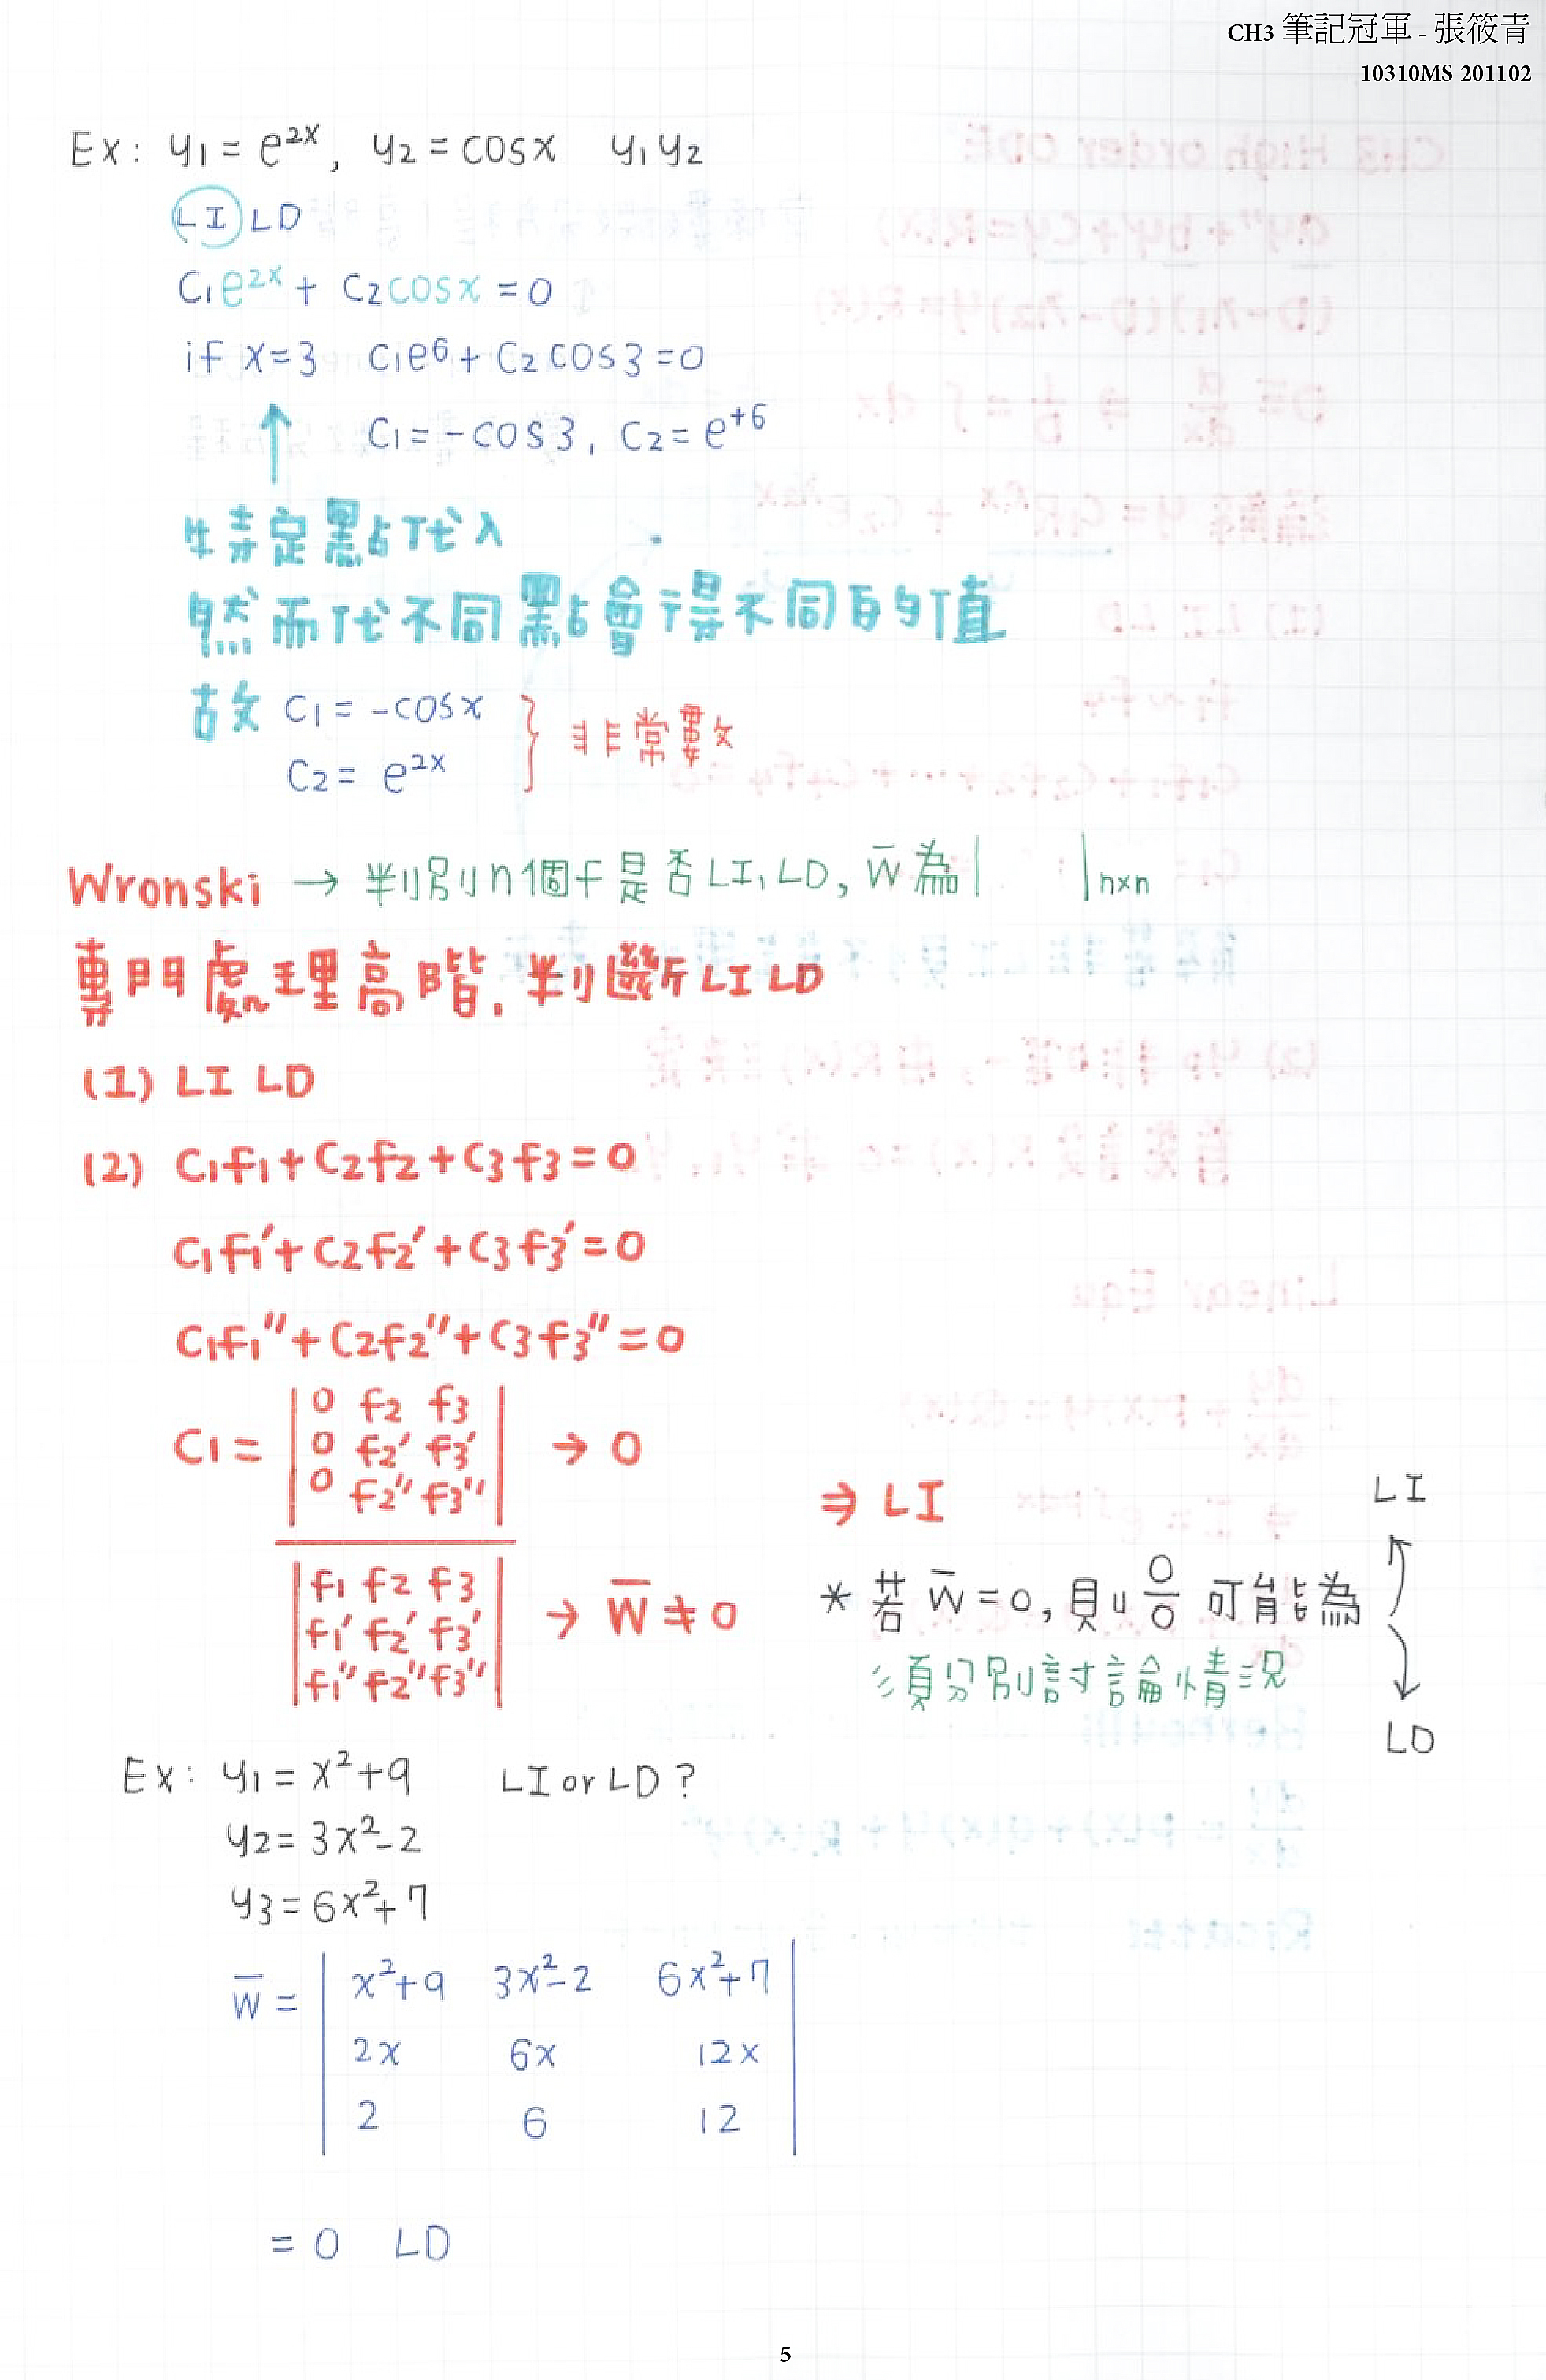 CH3 筆記冠軍 - 張筱青
10310MS 201102
Ex: y1 = e^2x, y2 = cosx y1 y2
LI LD
C1e^2x + C2cosx = 0
if x=3 C1e^6 + C2 cos3 = 0
C1 = -cos3, C2 = e^+6
↑
特定點代入
然而代不同點會得不同的值
故 C1 = -cosx
C2 = e^2x } 非常數
Wronski → 判別n個f是否LI, LD, W̄ 為 | |n×n
專門處理高階, 判斷LI LD
(1) LI LD
(2) C1f1 + C2f2 + C3f3 = 0
C1f1' + C2f2' + C3f3' = 0
C1f1'' + C2f2'' + C3f3'' = 0
0 f2 f3
C1 = 0 f2' f3' → 0
0 f2'' f3''
f1 f2 f3
f1' f2' f3' → W̄ ≠ 0
f1'' f2'' f3''
⇒ LI
* 若 W̄ = 0, 則 0/0 可能為
LI
LD
須分別討論情況
Ex: y1 = x²+9 LI or LD ?
y2 = 3x²-2
y3 = 6x²+7
W̄ = | x²+9 3x²-2 6x²+7 |
2x 6x 12x
2 6 12
= 0 LD
5